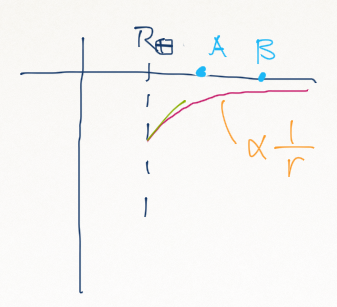 R⊕
A
B
∝ 1/r